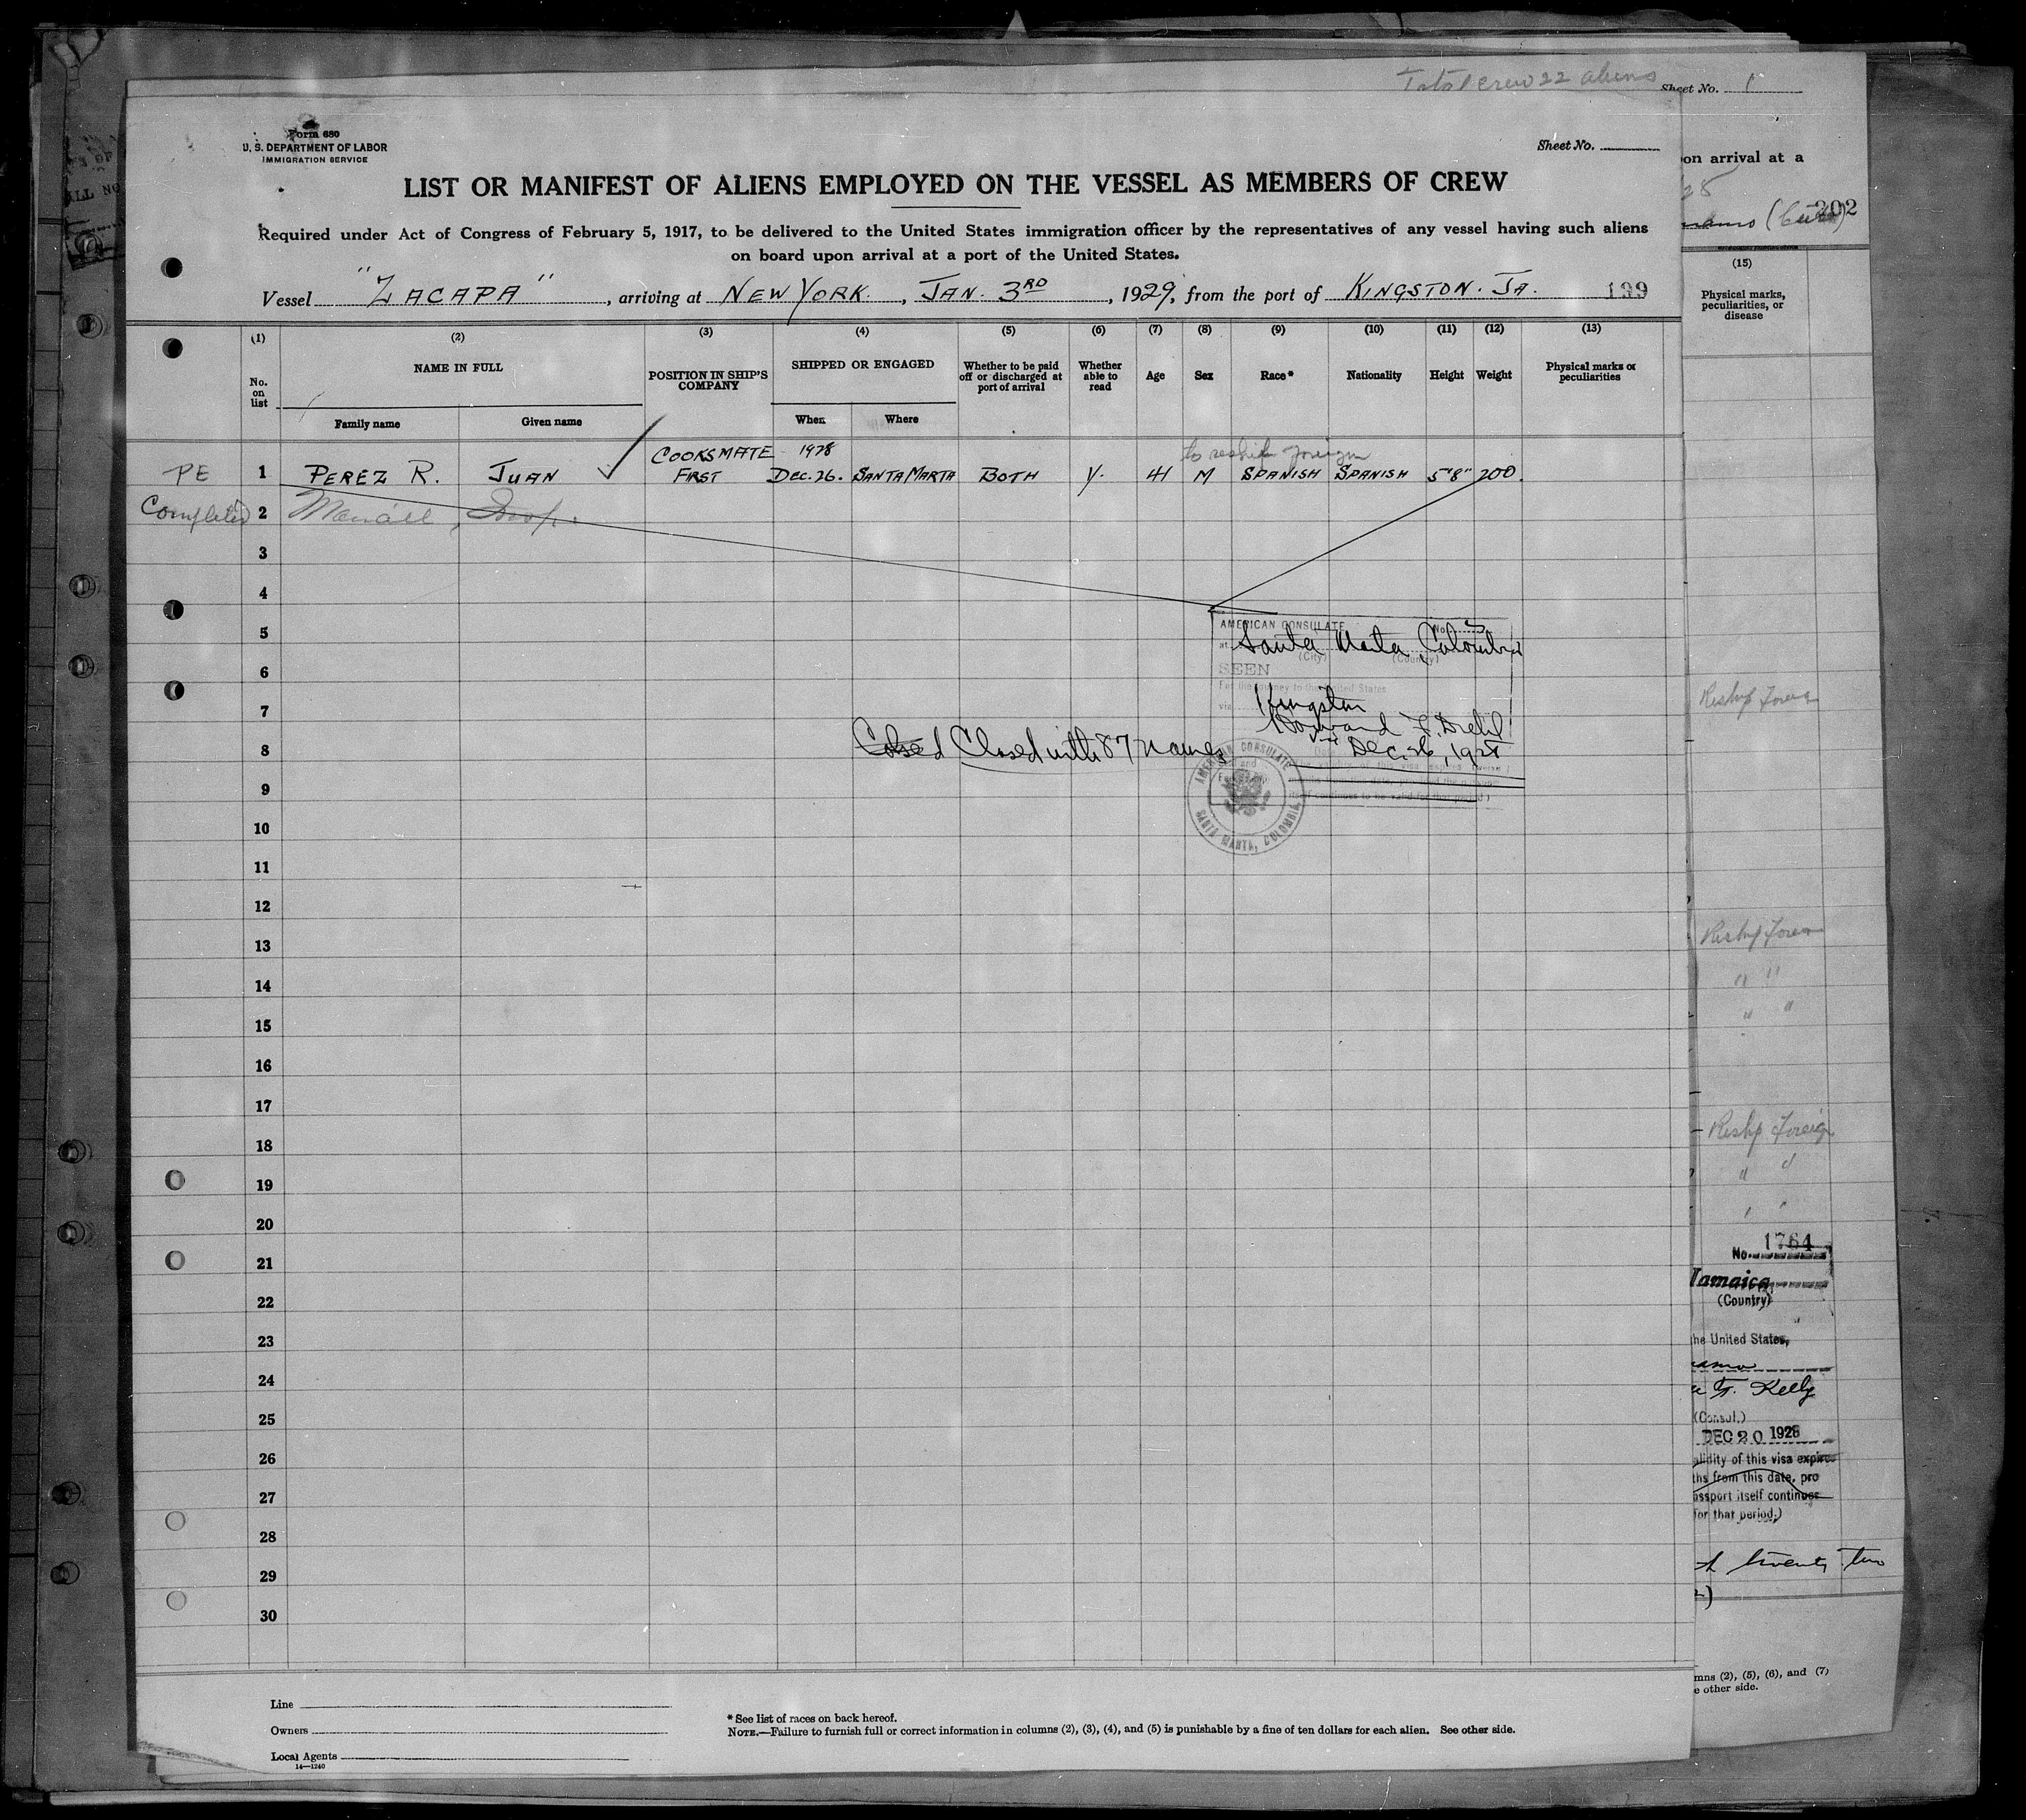 Total crew 22 aliens
Sheet No. 1
Form 680
U. S. DEPARTMENT OF LABOR
IMMIGRATION SERVICE
Sheet No.
LIST OR MANIFEST OF ALIENS EMPLOYED ON THE VESSEL AS MEMBERS OF CREW
on arrival at a
Required under Act of Congress of February 5, 1917, to be delivered to the United States immigration officer by the representatives of any vessel having such aliens
on board upon arrival at a port of the United States.
202
Vessel "ZACAPA", arriving at NEW YORK., JAN. 3RD, 1929, from the port of KINGSTON. JA. 199
(1) (2) (3) (4) (5) (6) (7) (8) (9) (10) (11) (12) (13)
(15)
No. on list
NAME IN FULL
Family name
Given name
POSITION IN SHIP'S COMPANY
SHIPPED OR ENGAGED
When
Where
Whether to be paid off or discharged at port of arrival
Whether able to read
Age
Sex
Race*
Nationality
Height
Weight
Physical marks or peculiarities
Physical marks, peculiarities, or disease
to reship foreign
COOKSMATE 1928
PE 1 PEREZ R. JUAN FIRST DEC. 26. SANTA MARTA BOTH Y. 41 M SPANISH SPANISH 5'8" 200.
Completed 2
3
4
5
6
7
8
9
10
11
12
13
14
15
16
17
18
19
20
21
22
23
24
25
26
27
28
29
30
AMERICAN CONSULATE No.
at Santa Marta, Colombia
(City) (Country)
SEEN
For the journey to the United States
via Kingston
Dec. 26, 1928
Closed with 87 names
AMERICAN CONSULATE
SANTA MARTA, COLOMBIA
Reship Foreign
Reship Foreign
" "
" "
Reship Foreign
" "
No. 1764
Jamaica
(Country)
he United States,
Kelly
(Consul.)
DEC 20 1928
alidity of this visa expires
ths from this date, pro
assport itself continues
for that period.)
twenty two
mns (2), (5), (6), and (7)
e other side.
Line
Owners
Local Agents
14—1240
* See list of races on back hereof.
NOTE.—Failure to furnish full or correct information in columns (2), (3), (4), and (5) is punishable by a fine of ten dollars for each alien. See other side.